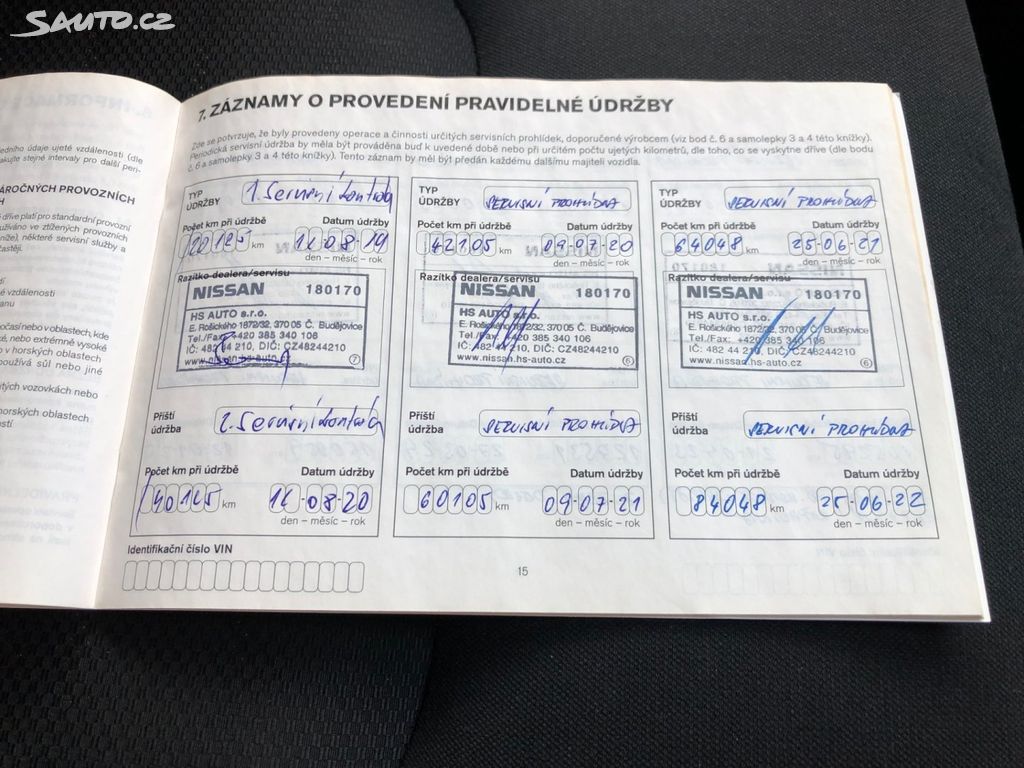 SAUTO.CZ
7. ZÁZNAMY O PROVEDENÍ PRAVIDELNÉ ÚDRŽBY
Zde se potvrzuje, že byly provedeny operace a činnosti určitých servisních prohlídek, doporučené výrobcem (viz bod č. 6 a samolepky 3 a 4 této knížky).
Periodická servisní údržba by měla být prováděna buď k uvedené době nebo při určitém počtu ujetých kilometrů, dle toho, co se vyskytne dříve (dle bodu
č. 6 a samolepky 3 a 4 této knížky). Tento záznam by měl být předán každému dalšímu majiteli vozidla.
TYP ÚDRŽBY 1. Servisní kontrola
Počet km při údržbě Datum údržby
20125 km 12-08-19
den – měsíc – rok
Razítko dealera/servisu
NISSAN 180170
HS AUTO s.r.o.
E. Rošického 1872/32, 370 05 Č. Budějovice
Tel./Fax: +420 385 340 106
IČ: 482 44 210, DIČ: CZ48244210
www.nissan.hs-auto.cz 7
Příští údržba 2. Servisní kontrola
Počet km při údržbě Datum údržby
40125 km 12-08-20
den – měsíc – rok
TYP ÚDRŽBY SERVISNÍ PROHLÍDKA
Počet km při údržbě Datum údržby
42105 km 09-07-20
den – měsíc – rok
Razítko dealera/servisu
NISSAN 180170
HS AUTO s.r.o.
E. Rošického 1872/32, 370 05 Č. Budějovice
Tel./Fax: +420 385 340 106
IČ: 482 44 210, DIČ: CZ48244210
www.nissan.hs-auto.cz 6
Příští údržba SERVISNÍ PROHLÍDKA
Počet km při údržbě Datum údržby
60105 km 09-07-21
den – měsíc – rok
TYP ÚDRŽBY SERVISNÍ PROHLÍDKA
Počet km při údržbě Datum údržby
64048 km 25-06-21
den – měsíc – rok
Razítko dealera/servisu
NISSAN 180170
HS AUTO s.r.o.
E. Rošického 1872/32, 370 05 Č. Budějovice
Tel./Fax: +420 385 340 106
IČ: 482 44 210, DIČ: CZ48244210
www.nissan.hs-auto.cz 6
Příští údržba SERVISNÍ PROHLÍDKA
Počet km při údržbě Datum údržby
84048 km 25-06-22
den – měsíc – rok
Identifikační číslo VIN
15